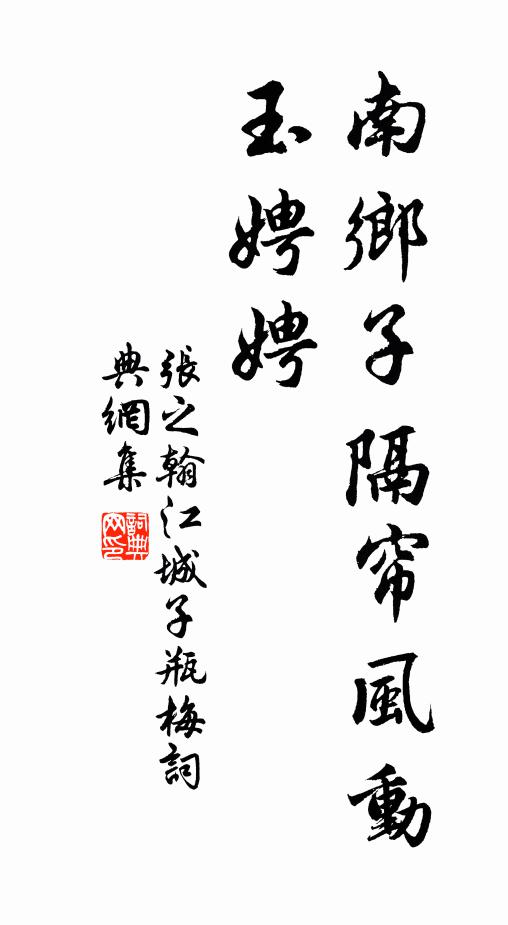 南鄉子隔帘風動
玉娉娉
張之翰江城子瓶梅詞
典網集
詞典
网印